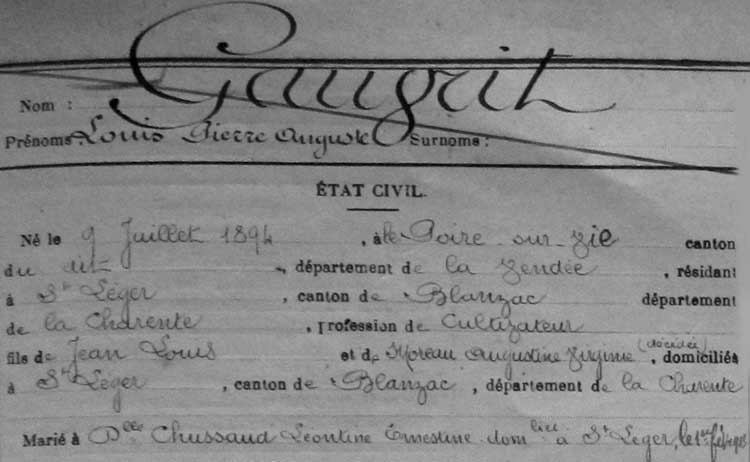 Nom : Gaugrit
Prénoms : Louis Pierre Auguste Surnoms :
ÉTAT CIVIL.
Né le 9 Juillet 1894, à le Poire-sur-Vie canton
du dit, département de la Vendée, résidant
à St Léger, canton de Blanzac département
de la Charente, profession de Cultivateur
fils de Jean Louis et de Moreau Augustine Virginie (décédée), domiciliés
à St Léger, canton de Blanzac, département de la Charente
Marié à Dlle Chussaud Léontine Ernestine dom liée à St Léger, le 1er